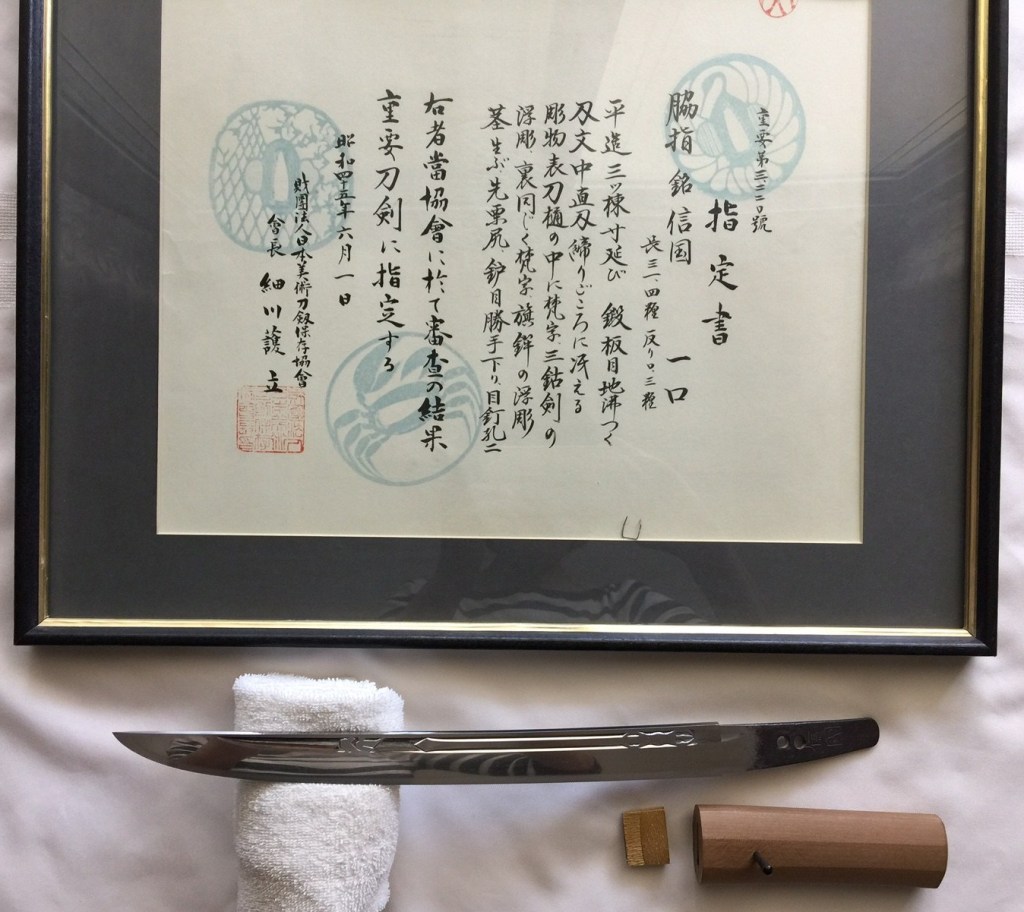 重要第
指定書
脇指 銘 信国 一口
長三一、四糎 反り〇、三糎
平造 三ツ棟 寸延び 鍛板目地沸つく
刃文中直刃締りごころに冴える
彫物表刀樋の中に梵字三鈷剣の
浮彫 裏同じく梵字、旗鉾の浮彫
茎生ぶ先栗尻、鈩目勝手下り、目釘孔二
右者當協會に於て審査の結果
重要刀剣に指定する
昭和四十五年六月一日
財團法人日本美術刀剣保存協會
會長 細川護立